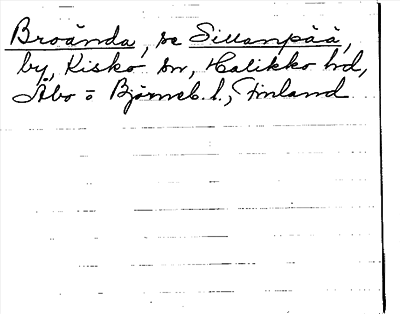 Broända, se Sillanpää,
by, Kisko sn, Halikko hd,
Åbo o Björneb. l., Finland